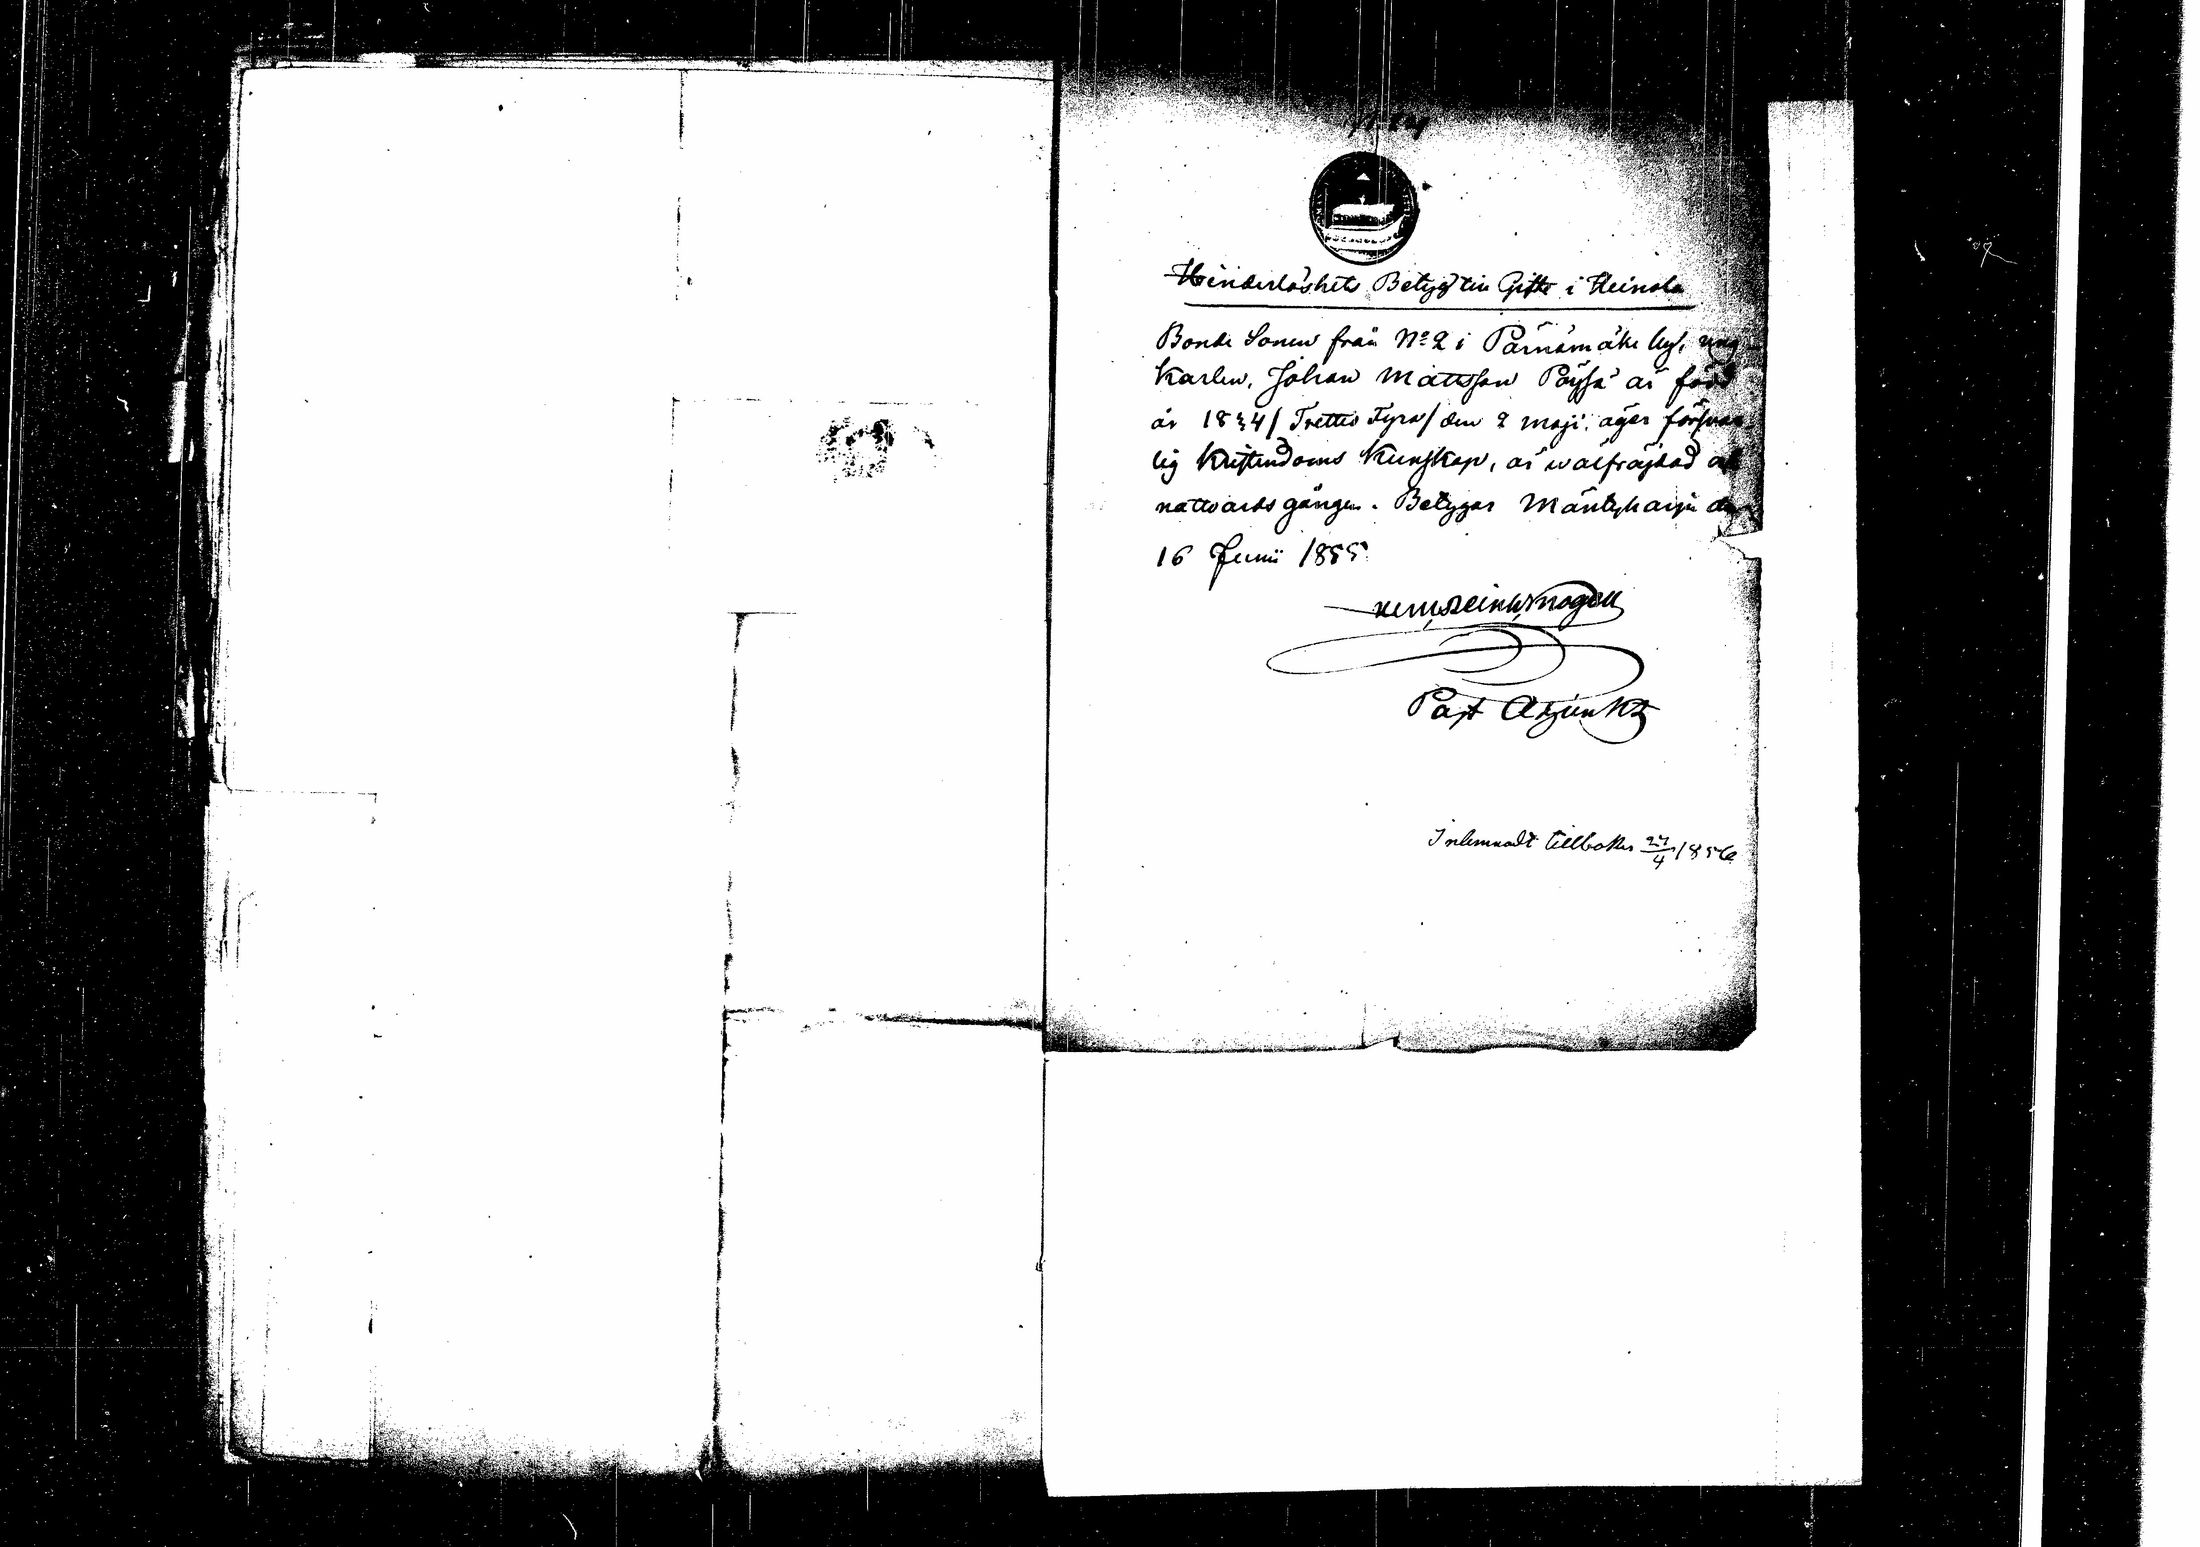 Hinderlöshets Betyg till Gifte i Heinola
Bonde Sonen från No 2 i Pärnämäke by, ung
Karlen, Johan Mattsson Pöyhä är född
år 1834/Trettio Fyra/ den 2 maji, äger försvar
lig Kristendoms Kunskap, är wälfräjdad och
nattvards gången. Betygar Mäntyharju den
16 Junii 1855
Past Adjunkt
Inlemnadt tillbaka 27/4 1856